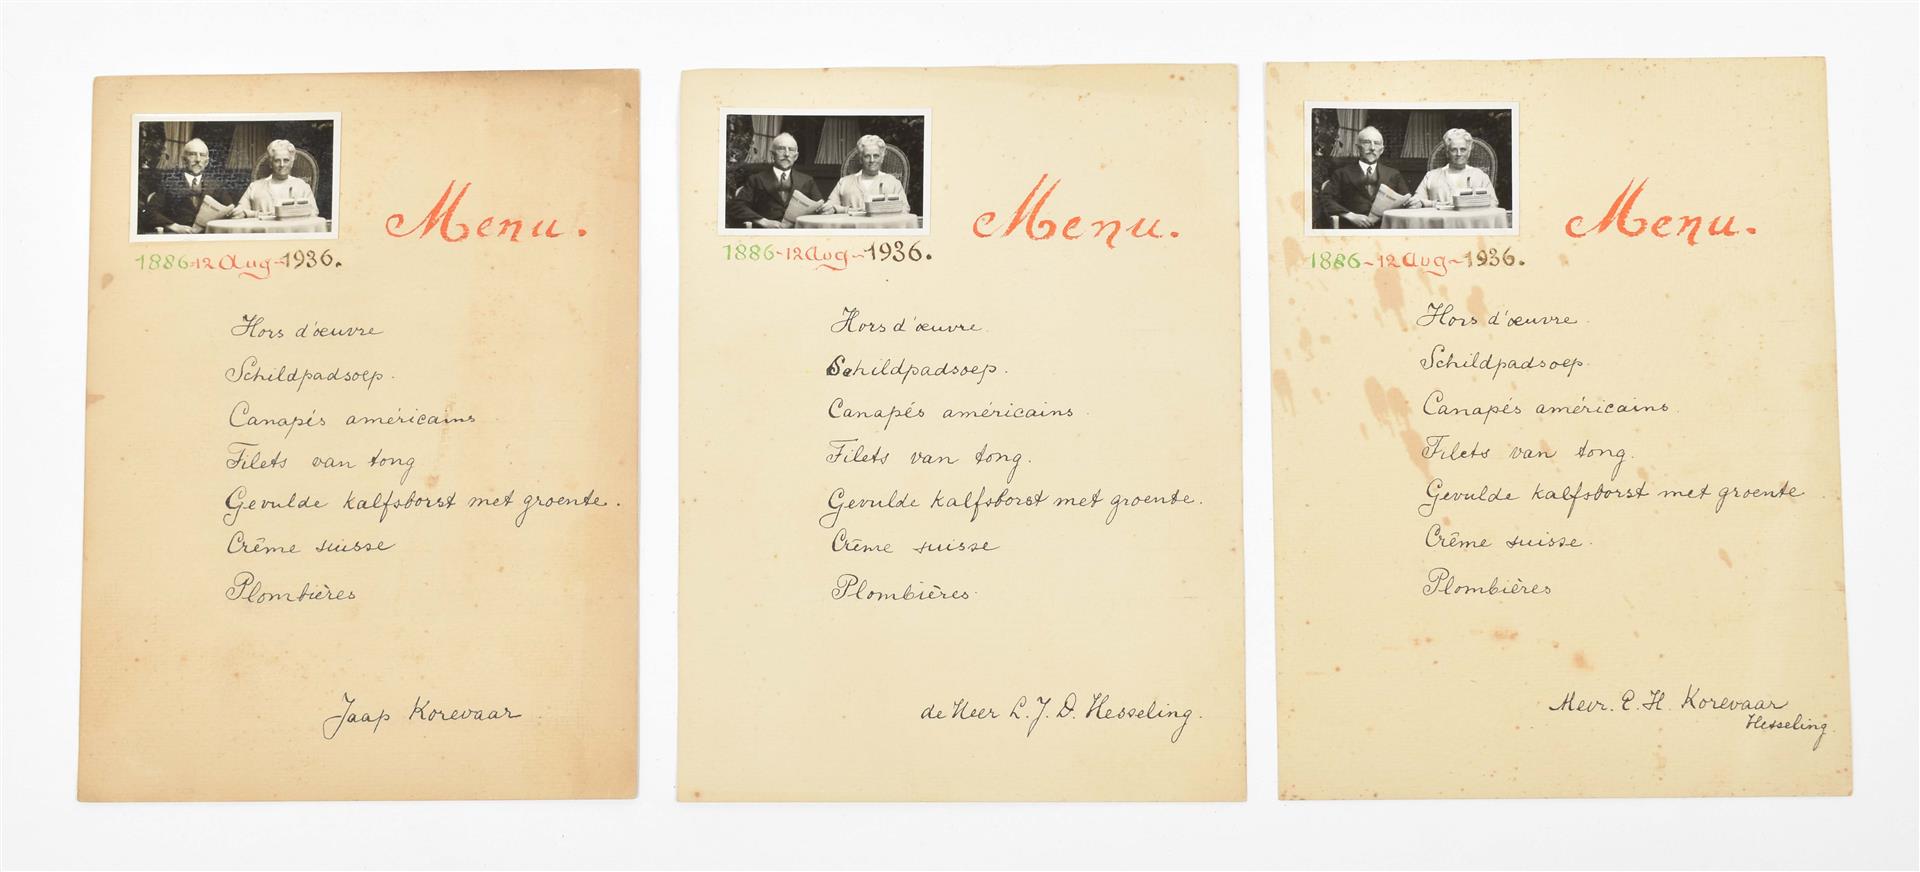 Menu.
1886-12 Aug-1936.
Hors d'œuvre
Schildpadsoep.
Canapés américains
Filets van tong
Gevulde kalfsborst met groente.
Crême suisse
Plombières
Jaap Korevaar
Menu.
1886-12 Aug-1936.
Hors d'œuvre.
Schildpadsoep.
Canapés américains
Filets van tong.
Gevulde kalfsborst met groente.
Crême suisse
Plombières.
de Heer L. J. D. Hesseling.
Menu.
1886-12 Aug-1936.
Hors d'œuvre.
Schildpadsoep.
Canapés américains.
Filets van tong.
Gevulde kalfsborst met groente
Crême suisse.
Plombières
Mevr. E. H. Korevaar
Hesseling.